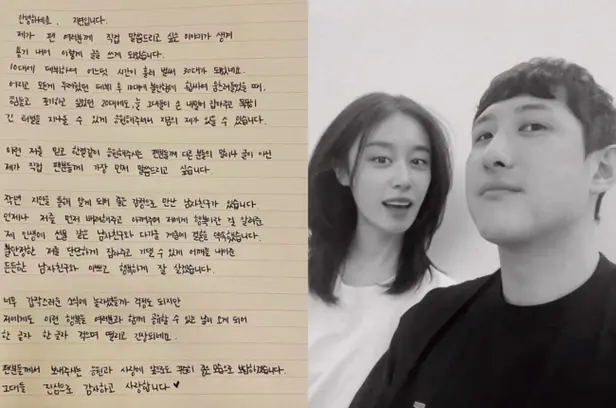 안녕하세요, 지연입니다.
제가 팬 여러분께 직접 말씀드리고 싶은 이야기가 생겨
용기 내어 이렇게 글을 쓰게 되었습니다.
10대에 데뷔하여 어느덧 시간이 흘러 벌써 30대가 되었네요.
어리고 모든게 두려웠던 데뷔 후 10대에
힘들고 포기하고 싶었던 20대에도, 늘 그대들이 손 내밀어 잡아주고 묵묵히
긴 터널을 지나올 수 있게 응원해주셔서 지금의 제가 있을 수 있습니다.
이런 저를 믿고 한결같이 응원해주시는 팬분들께 다른 분들의 말이나 글이 아닌
제가 직접 팬분들께 가장 먼저 말씀드리고 싶습니다.
작년 지인을 통해 알게 되어 좋은 감정으로 만난 남자친구가 있습니다.
언제나 저를 먼저 배려해주고 아껴주며 저에게 행복이란 걸 알려준
제 인생에 선물 같은 남자친구와 다가올 겨울에 결혼을 약속했습니다.
불안정한 저를 단단하게 잡아주고 기댈 수 있게 어깨를 내어준
든든한 남자친구와 예쁘고 행복하게 잘 살겠습니다.
너무 갑작스러운 소식에 놀라셨을까 걱정도 되지만
저에게도 이런 행복을 여러분과 함께 공유할 수 있는 날이 오게 되어
한 글자 한 글자 적으며 떨리고 긴장되네요.
팬분들께서 보내주시는 응원과 사랑에 앞으로도 꾸준히 좋은 모습으로 보답하겠습니다.
그대들 진심으로 감사하고 사랑합니다 ♥